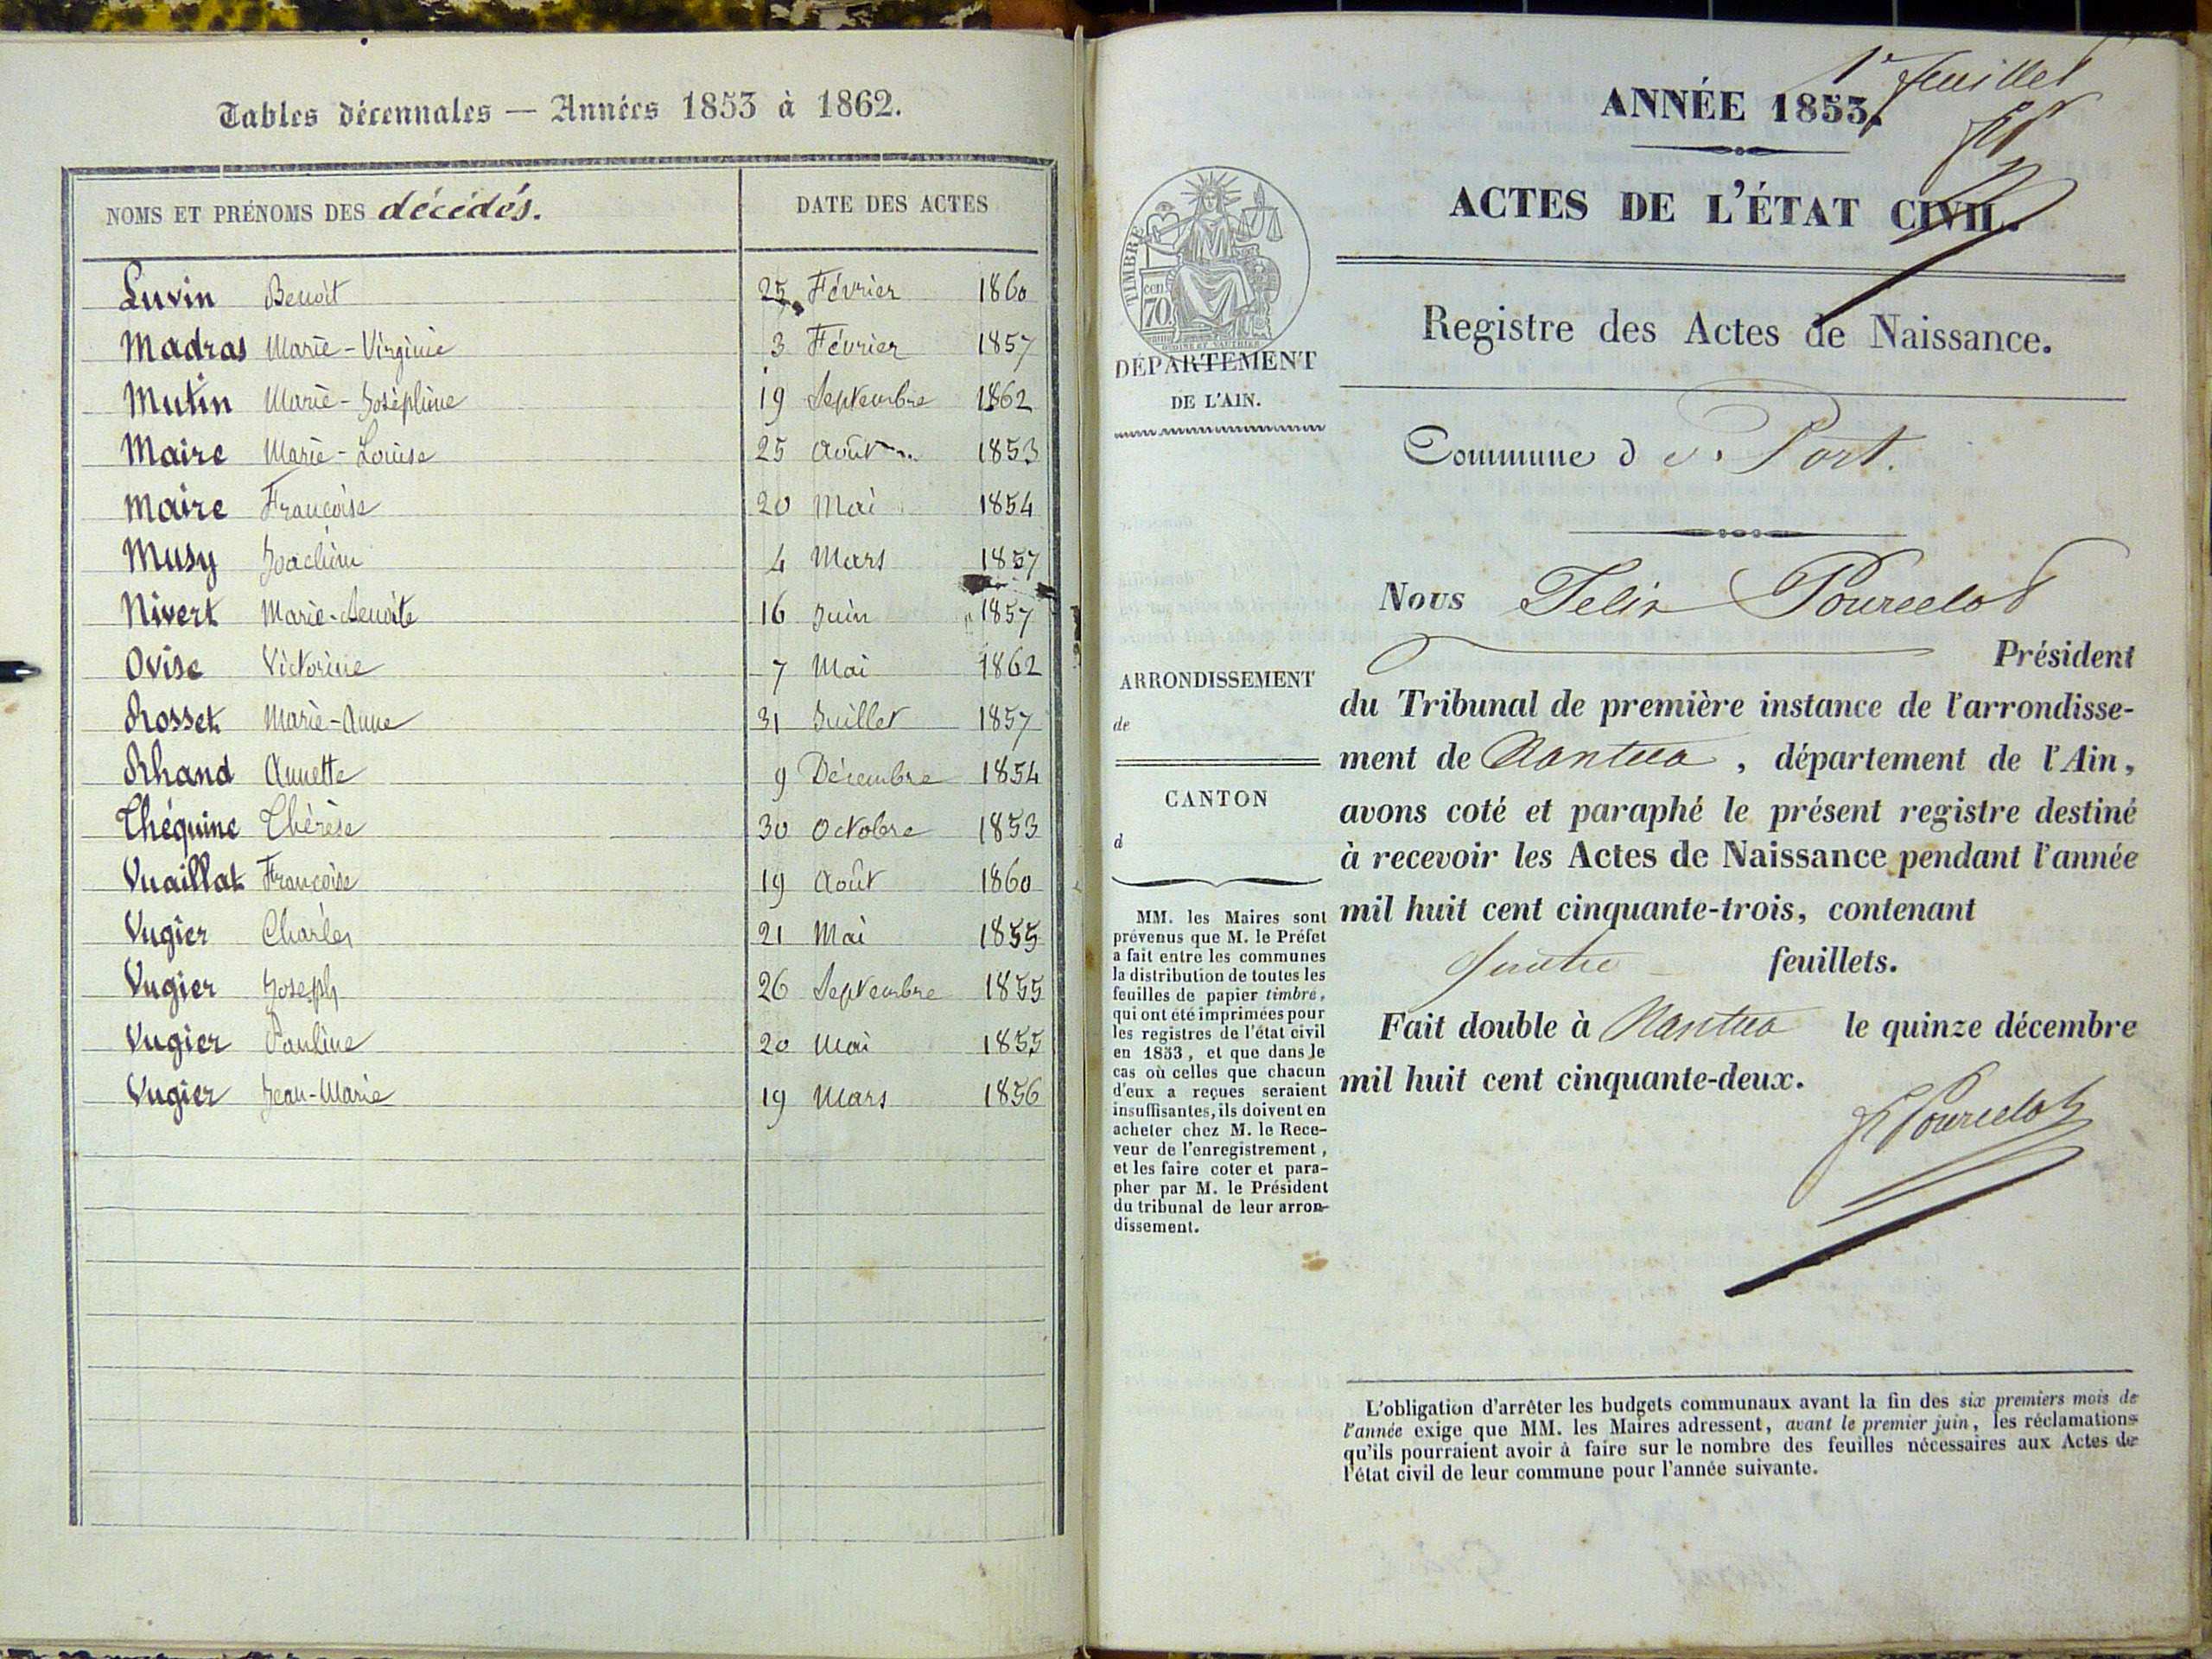 Tables décennales — Années 1853 à 1862.
NOMS ET PRÉNOMS DES décédés. DATE DES ACTES
Luvin Benoît 25 Février 1860
Madras Marie-Virginie 3 Février 1857
Mutin Marie-Joséphine 19 Septembre 1862
Maire Marie-Louise 25 Août 1853
Maire Françoise 20 Mai 1854
Musy Joachim 4 Mars 1857
Nivert Marie-Benoite 16 Juin 1857
Ovise Victorine 7 Mai 1862
Rosset Marie-Anne 31 Juillet 1857
Rhand Annette 9 Décembre 1854
Théquine Thérèse 30 Octobre 1853
Vuaillat Françoise 19 Août 1860
Vugier Charles 21 Mai 1855
Vugier Joseph 26 Septembre 1855
Vugier Pauline 20 Mai 1855
Vugier Jean-Marie 19 Mars 1856
1er feuillet
ANNÉE 1853.
ACTES DE L'ÉTAT CIVIL.
Registre des Actes de Naissance.
TIMBRE
cen. 70
DÉPARTEMENT
DE L'AIN.
Commune de Port.
ARRONDISSEMENT
de
CANTON
d
MM. les Maires sont
prévenus que M. le Préfet
a fait entre les communes
la distribution de toutes les
feuilles de papier timbré,
qui ont été imprimées pour
les registres de l'état civil
en 1853, et que dans le
cas où celles que chacun
d'eux a reçues seraient
insuffisantes, ils doivent en
acheter chez M. le Rece-
veur de l'enregistrement,
et les faire coter et para-
pher par M. le Président
du tribunal de leur arron-
dissement.
Nous Felix Pourcelot
Président
du Tribunal de première instance de l'arrondisse-
ment de Nantua, département de l'Ain,
avons coté et paraphé le présent registre destiné
à recevoir les Actes de Naissance pendant l'année
mil huit cent cinquante-trois, contenant
quatre feuillets.
Fait double à Nantua le quinze décembre
mil huit cent cinquante-deux.
F Pourcelot
L'obligation d'arrêter les budgets communaux avant la fin des six premiers mois de
l'année exige que MM. les Maires adressent, avant le premier juin, les réclamations
qu'ils pourraient avoir à faire sur le nombre des feuilles nécessaires aux Actes de
l'état civil de leur commune pour l'année suivante.